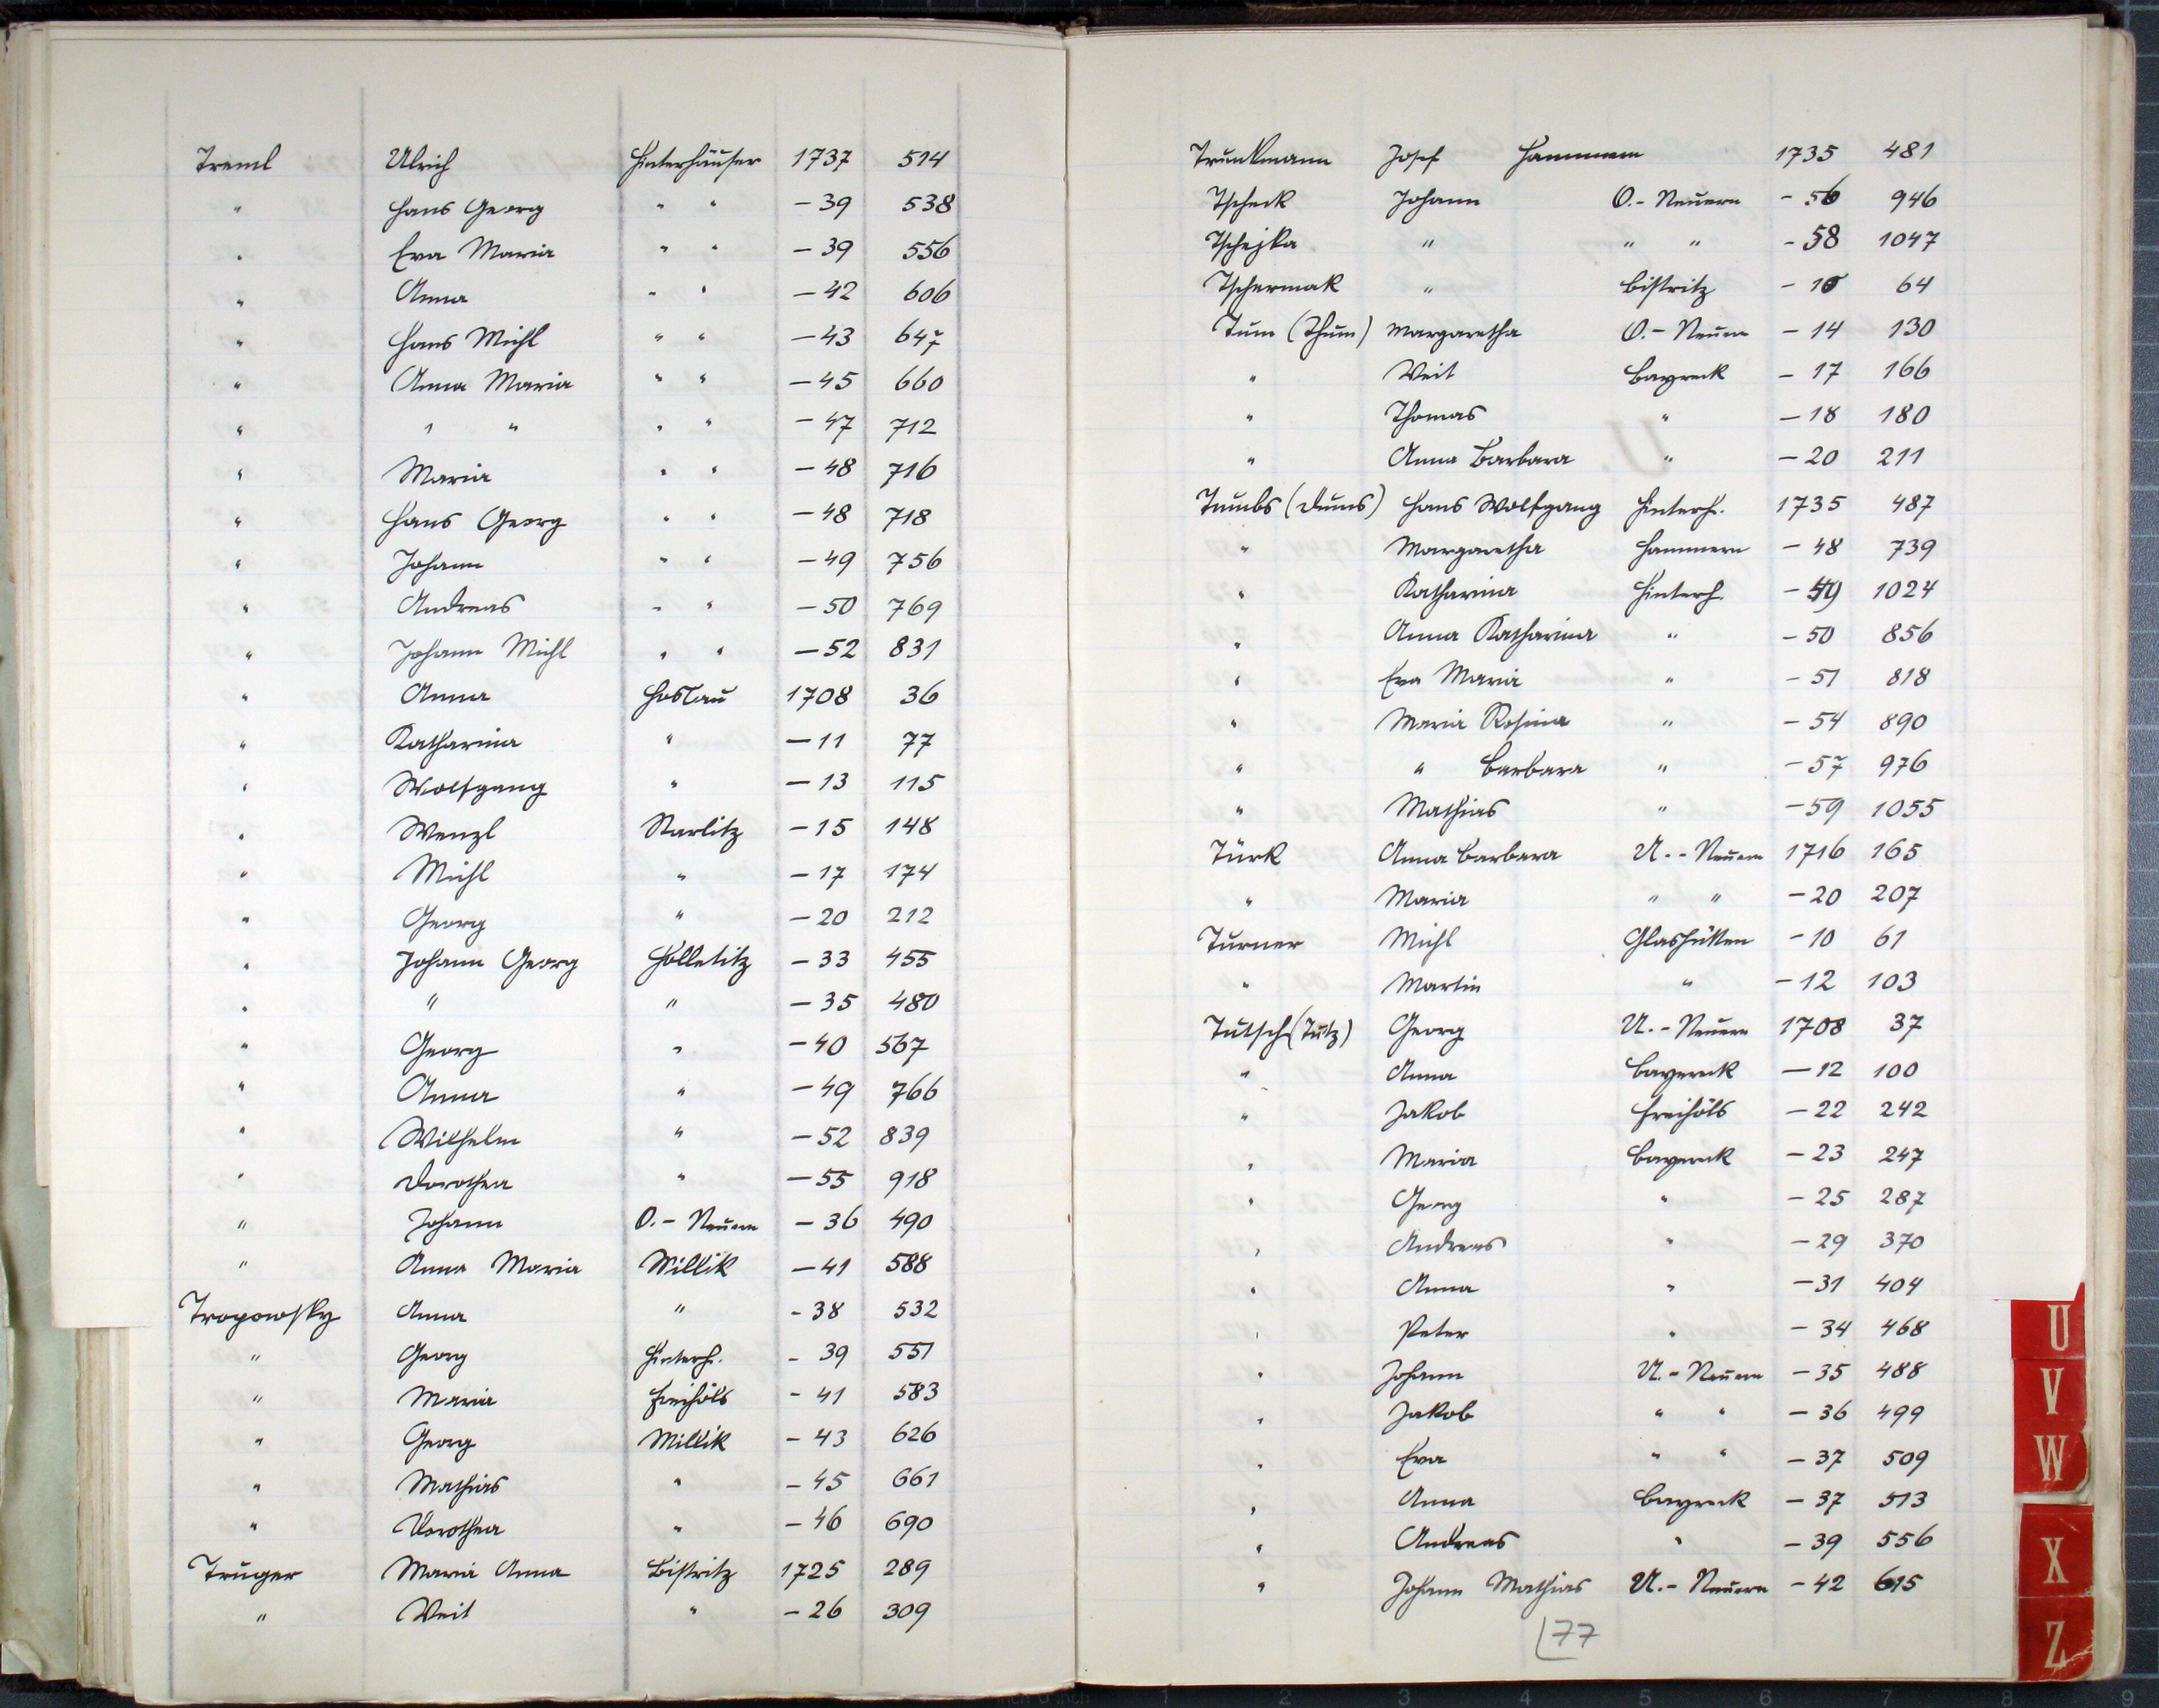 Treml Ulrich Hinterhäuser 1737 514
" Hans Georg " " – 39 538
" Eva Maria " " – 39 556
" Anna " " – 42 606
" Hans Michl " " – 43 647
" Anna Maria " " – 45 660
" " " " " – 47 712
" Maria " " – 48 716
" Hans Georg " " – 48 718
" Johann " " – 49 756
" Andreas " " – 50 769
" Johann Michl " " – 52 831
" Anna Hostau 1708 36
" Katharina " – 11 77
" Wolfgang " – 13 115
" Wenzl Starlitz – 15 148
" Michl " – 17 174
" Georg " – 20 212
" Johann Georg Holletitz – 33 455
" " " – 35 480
" Georg " – 40 567
" Anna " – 49 766
" Wilhelm " – 52 839
" Dorothea " – 55 918
" Johann O.- Neuern – 36 490
" Anna Maria Millik – 41 588
Tropowsky Anna " - 38 532
" Georg Hinterh. - 39 551
" Maria Freihöls - 41 583
" Georg Millik - 43 626
" Mathias " - 45 661
" Dorothea " - 46 690
Truger Maria Anna Bistritz 1725 289
" Veit " - 26 309
Trunkmann Josef Hammern 1735 481
Tscheck Johann O.- Neuern - 56 946
Tschejka " " " - 58 1047
Tschermak " Bistritz - 10 64
Tum (Thum) Margaretha O.- Neuern – 14 130
" Veit Bayreck – 17 166
" Thomas " – 18 180
" Anna Barbara " – 20 211
Tumbs (Dums) Hans Wolfgang Hinterh. 1735 487
" Margaretha Hammern – 48 739
" Katharina Hinterh. – 1024
" Anna Katharina " – 50 856
" Eva Maria " – 51 818
" Maria Rosina " – 54 890
" " Barbara " – 57 976
" Mathias " – 59 1055
Türk Anna Barbara U.- Neuern 1716 165
" Maria " " – 20 207
Turner Michl Glashütten - 10 61
" Martin " – 12 103
Tutsch (Tutz) Georg U.- Neuern 1708 37
" Anna Bayereck – 12 100
" Jakob Freihöls – 22 242
" Maria Bayereck – 23 247
" Georg " – 25 287
" Andreas " – 29 370
" Anna " – 31 404
" Peter " – 34 468
" Johann U.- Neuern – 35 488
" Jakob " " – 36 499
" Eva " " – 37 509
" Anna Bayreck – 37 513
" Andreas " – 39 556
" Johann Mathias U.- Neuern – 42 615
77
U
V
W
X
Z
1 2 3 4 5 6 7 8 9